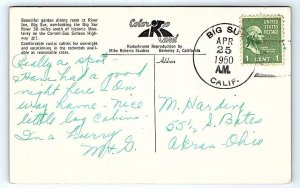 Beautiful garden dining room at River
Inn, Big Sur, overlooking the Big Sur
River 30 miles south of historic Monterey
on the Carmel-San Simeon Highway
Comfortable rustic cabins for overnight
and vacationing in the redwoods
ColorCard
Kodachrome Reproduction by
Mike Roberts Studios Berkeley 2, California
Address
BIG SUR
APR
25
1950
AM
CALIF.
1 CENT 1
Really a spot -
Have had a good
night here & On
way home - nice
little log cabin -
In a hurry
M+G.
M. Harding
65½ S. Bates
Akron - Ohio